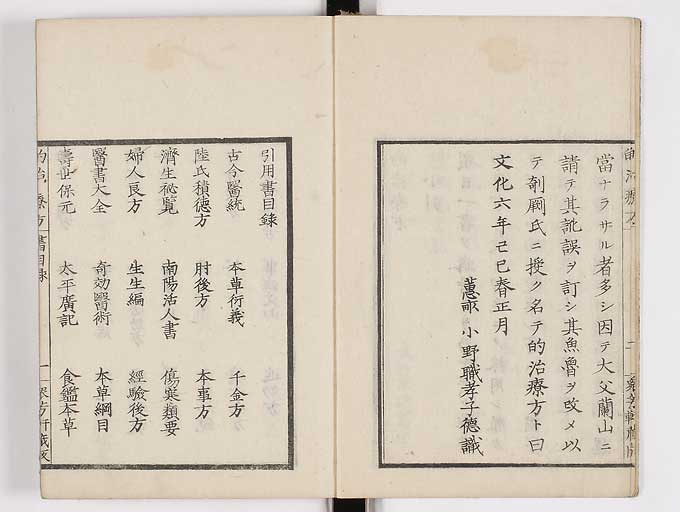 當ナラサル者多シ因テ大父蘭山ニ
請テ其訛誤ヲ訂シ其魚魯ヲ改メ以
テ剞劂氏ニ授ク名テ的治療方ト曰
文化六年己巳春正月
蕙畝 小野職孝子德識
引用書目錄
古今醫統 本草衍義 千金方
陸氏積德方 肘後方 本事方
濟生祕覽 南陽活人書 傷寒類要
婦人良方 生生編 經驗後方
醫書大全 奇効醫術 本草綱目
壽世保元 太平廣記 食鑑本草
的治療方 書目錄 一